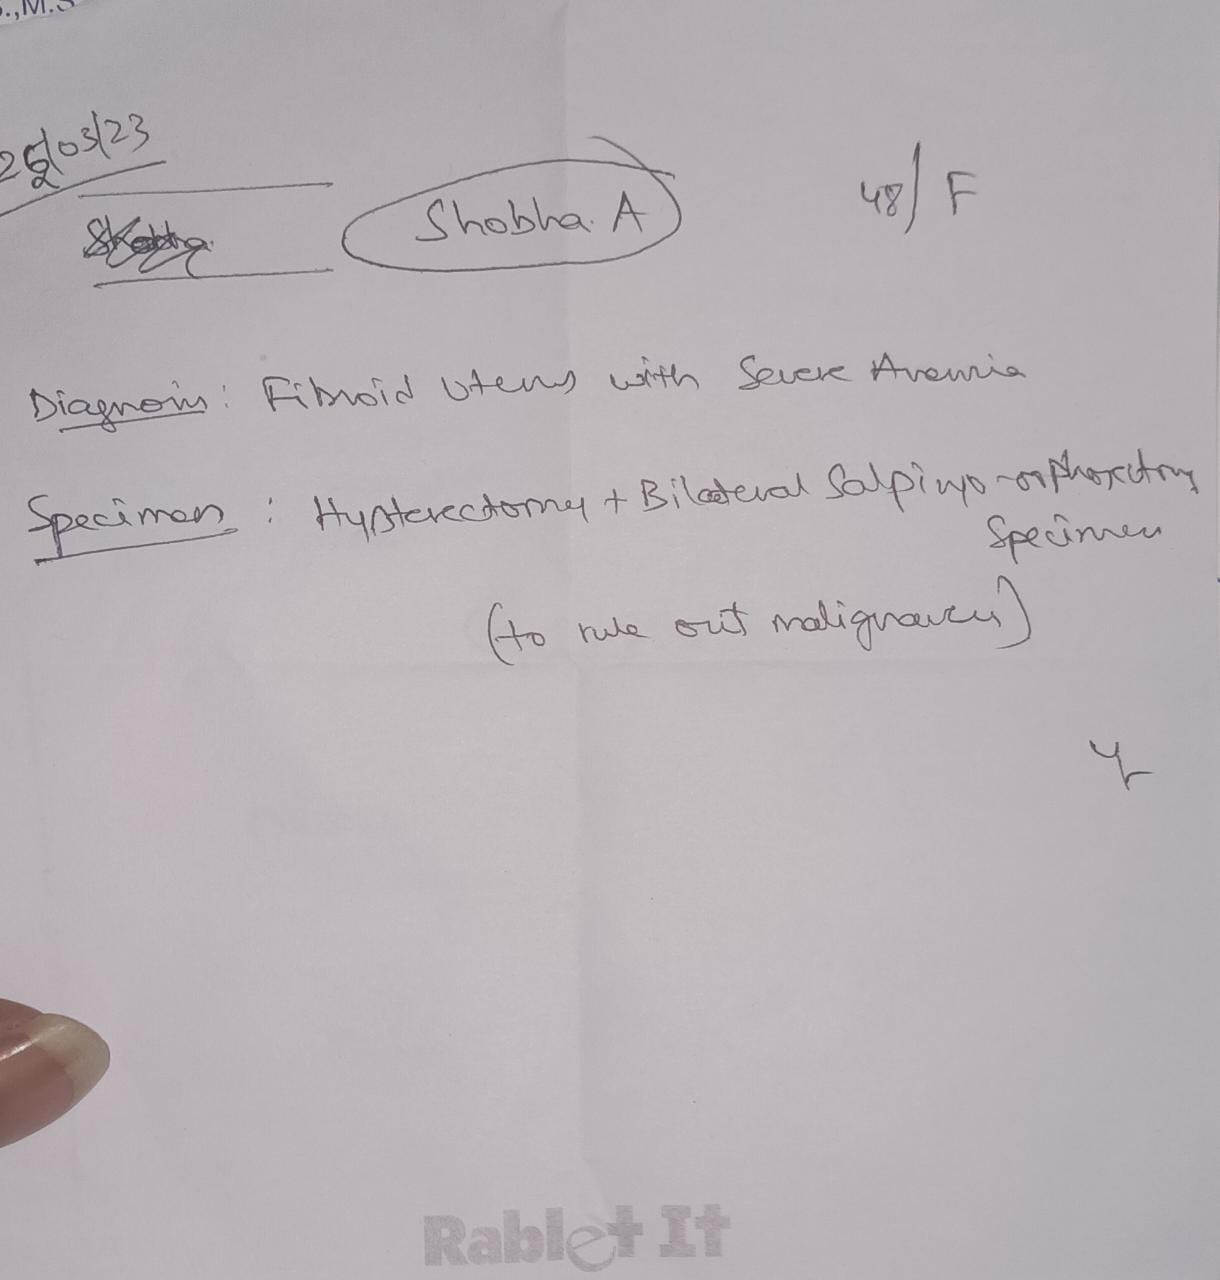 .,M.S
/03/23
Shobha. A 48/F
Diagnosis: Fibroid Uterus with Severe Anemia
Specimen : Hysterectomy + Bilateral Salpingo-oophorectomy
Specimen
(to rule out malignancy)
Rablet It